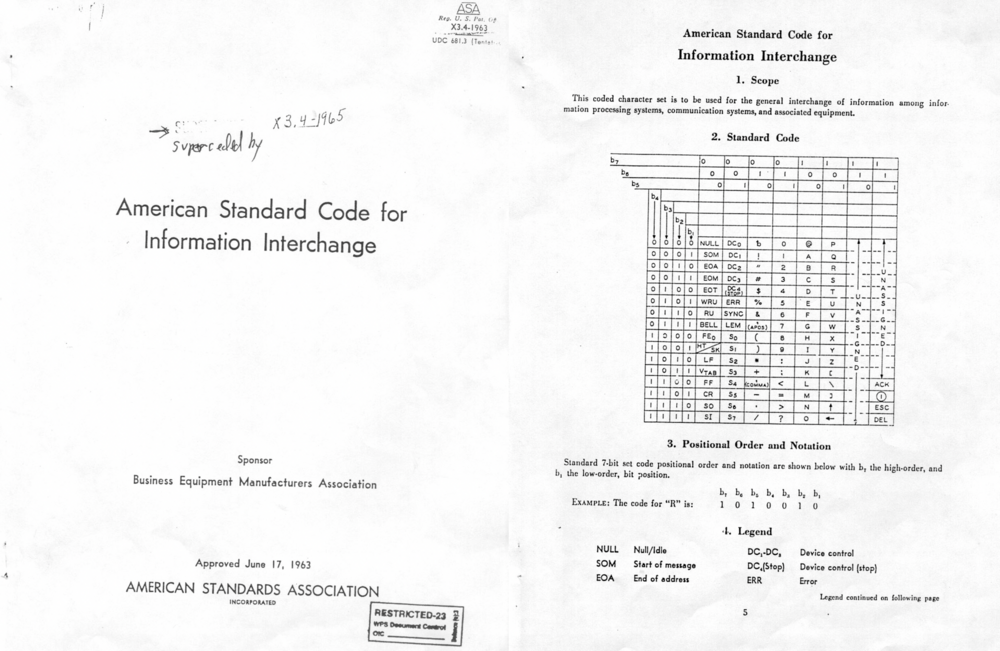 ASA
Reg. U. S. Pat. Off.
X3.4-1963
UDC 681.3
X3.4-1965
superceded by
American Standard Code for
Information Interchange
Sponsor
Business Equipment Manufacturers Association
Approved June 17, 1963
AMERICAN STANDARDS ASSOCIATION
INCORPORATED
RESTRICTED-23
WPS Document Control
OIC
American Standard Code for
Information Interchange
1. Scope
This coded character set is to be used for the general interchange of information among infor-
mation processing systems, communication systems, and associated equipment.
2. Standard Code
b7 0 0 0 0 1 1 1 1
b6 0 0 1 1 0 0 1 1
b5 0 1 0 1 0 1 0 1
b4
b3
b2
b1
0 0 0 0 NULL DC0 ␢ 0 @ P
0 0 0 1 SOM DC1 ! 1 A Q
0 0 1 0 EOA DC2 " 2 B R
0 0 1 1 EOM DC3 # 3 C S
0 1 0 0 EOT DC4 (STOP) $ 4 D T
0 1 0 1 WRU ERR % 5 E U
0 1 1 0 RU SYNC & 6 F V
0 1 1 1 BELL LEM ' (APOS) 7 G W
1 0 0 0 FE0 S0 ( 8 H X
1 0 0 1 HT SK S1 ) 9 I Y
1 0 1 0 LF S2 * : J Z
1 0 1 1 VTAB S3 + ; K [
1 1 0 0 FF S4 , (COMMA) < L \ ACK
1 1 0 1 CR S5 - = M ] ①
1 1 1 0 SO S6 . > N ↑ ESC
1 1 1 1 SI S7 / ? O ← DEL
UNASSIGNED
UNASSIGNED
3. Positional Order and Notation
Standard 7-bit set code positional order and notation are shown below with b7 the high-order, and
b1 the low-order, bit position.
b7 b6 b5 b4 b3 b2 b1
EXAMPLE: The code for “R” is: 1 0 1 0 0 1 0
4. Legend
NULL Null/Idle DC1-DC3 Device control
SOM Start of message DC4(Stop) Device control (stop)
EOA End of address ERR Error
Legend continued on following page
5